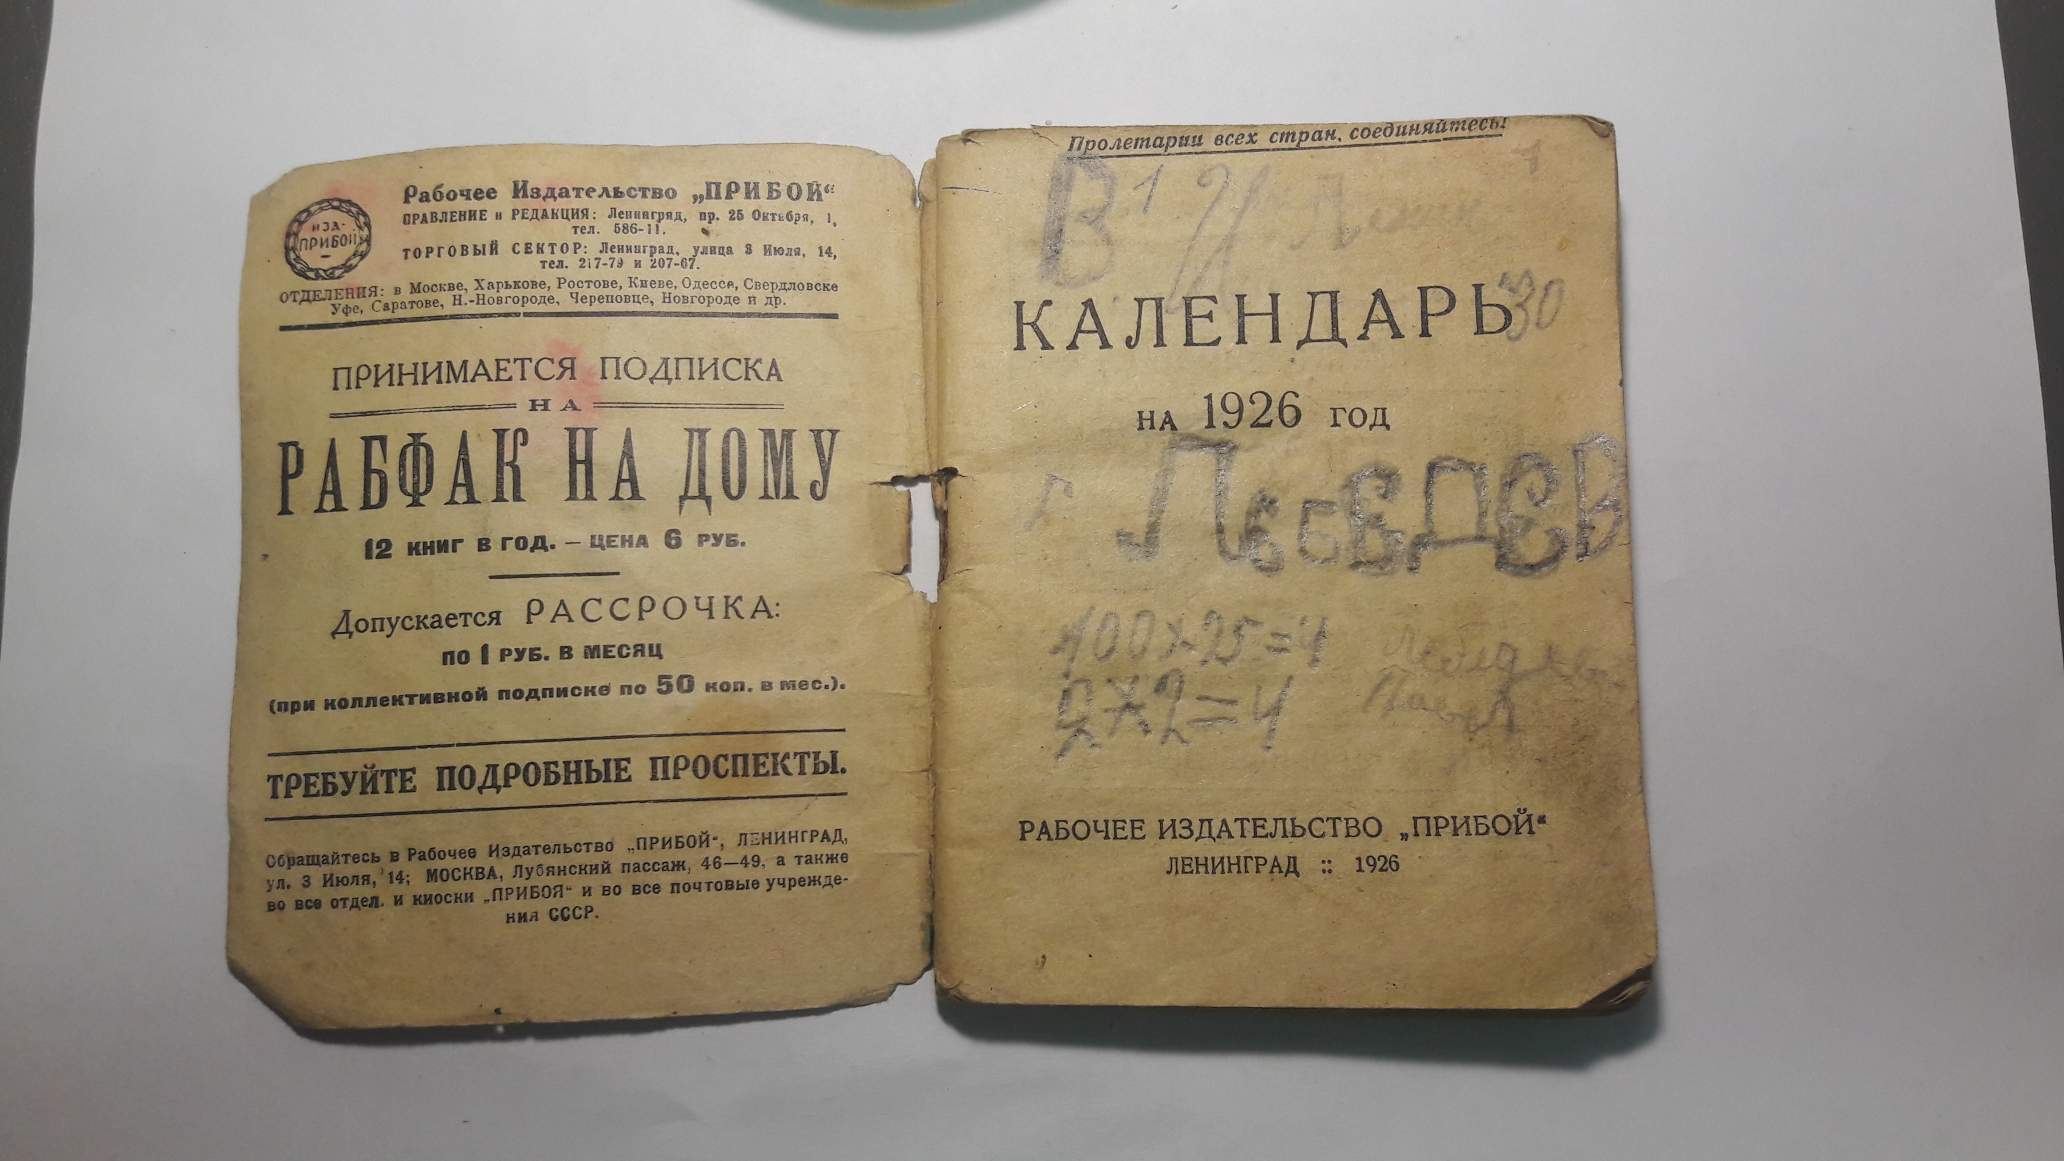 ИЗД-
ПРИБОЙ
Рабочее Издательство „ПРИБОЙ“
ПРАВЛЕНИЕ и РЕДАКЦИЯ: Ленинград, пр. 25 Октября, 1,
тел. 586-11.
ТОРГОВЫЙ СЕКТОР: Ленинград, улица 3 Июля, 14,
тел. 217-79 и 207-67.
ОТДЕЛЕНИЯ: в Москве, Харькове, Ростове, Киеве, Одессе, Свердловске
Уфе, Саратове, Н.-Новгороде, Череповце, Новгороде и др.
ПРИНИМАЕТСЯ ПОДПИСКА
НА
РАБФАК НА ДОМУ
12 КНИГ В ГОД. — ЦЕНА 6 РУБ.
Допускается РАССРОЧКА:
ПО 1 РУБ. В МЕСЯЦ
(при коллективной подписке по 50 коп. в мес.).
ТРЕБУЙТЕ ПОДРОБНЫЕ ПРОСПЕКТЫ.
Обращайтесь в Рабочее Издательство „ПРИБОЙ“, ЛЕНИНГРАД,
ул. 3 Июля, 14; МОСКВА, Лубянский пассаж, 46—49, а также
во все отдел. и киоски „ПРИБОЯ“ и во все почтовые учрежде-
ния СССР.
Пролетарии всех стран, соединяйтесь!
В 1
КАЛЕНДАРЬ
30
НА 1926 ГОД
ЛЕБЕДЕВ
100×25=4
2×2=4
РАБОЧЕЕ ИЗДАТЕЛЬСТВО „ПРИБОЙ“
ЛЕНИНГРАД :: 1926